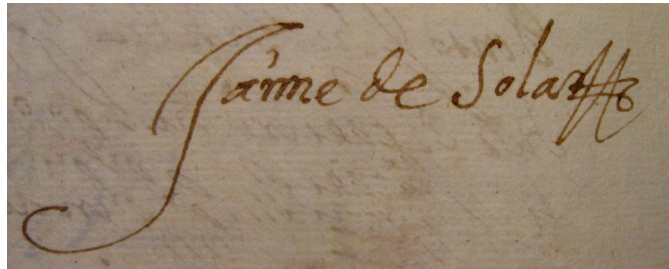 Jaime de Solar